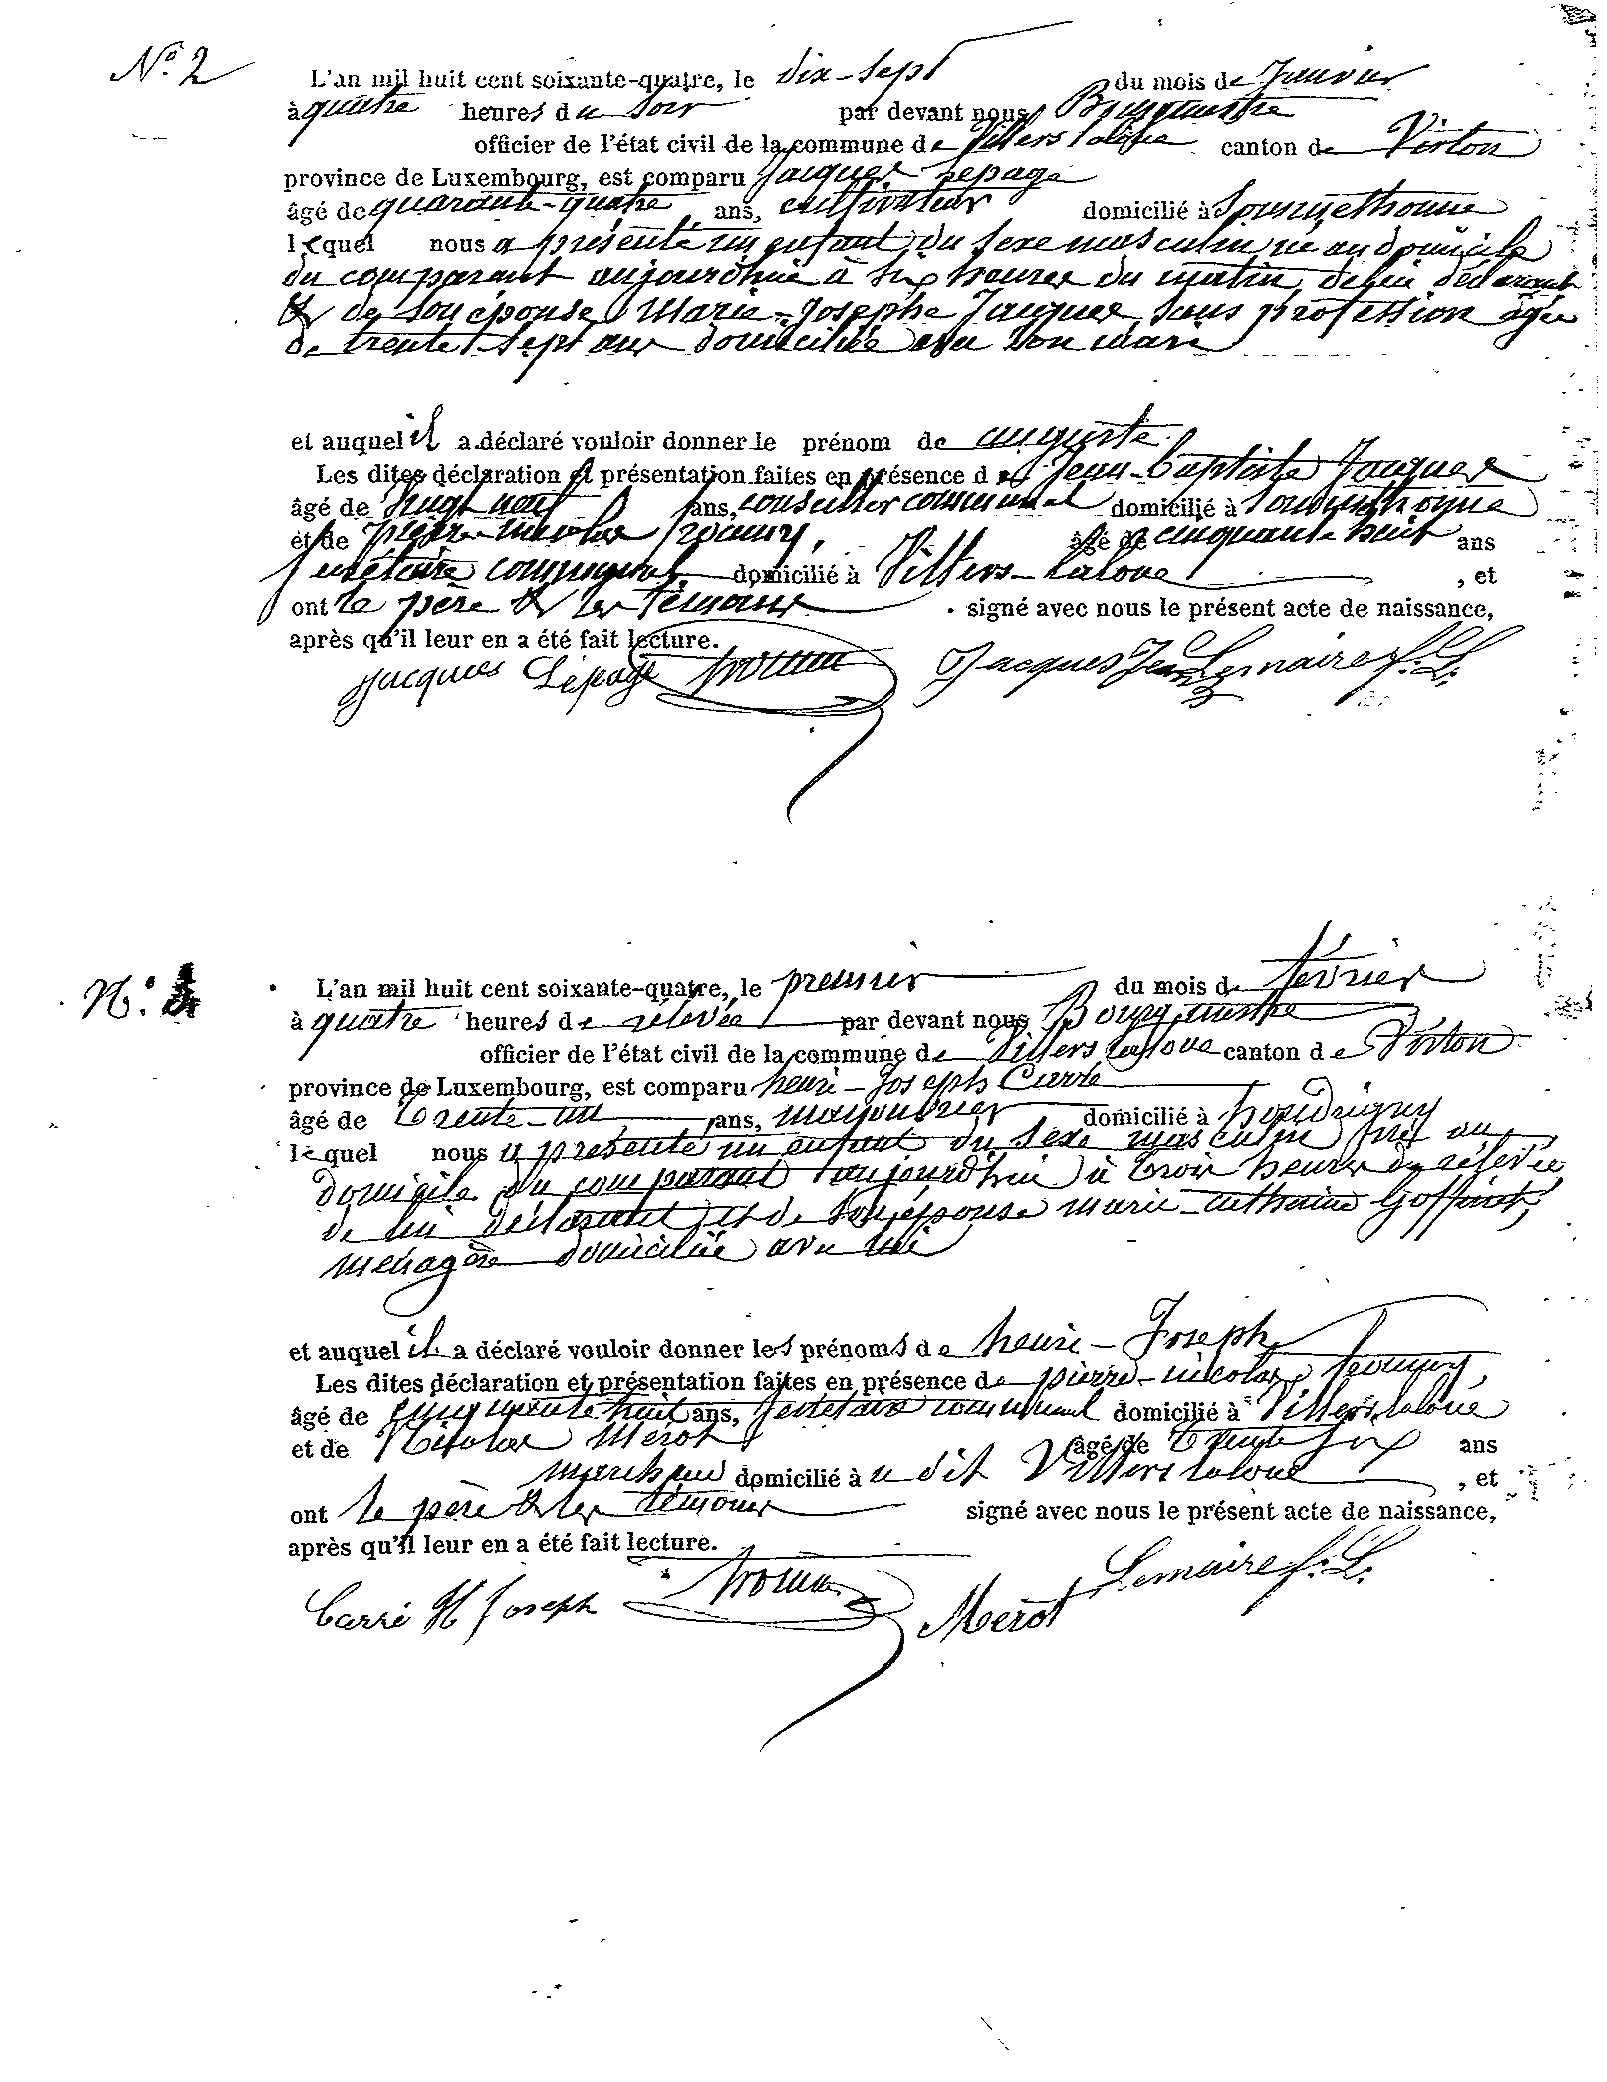 N.° 2
L'an mil huit cent soixante-quatre, le dix-sept du mois de Janvier
à quatre heures du soir par devant nous Bourgmestre
officier de l'état civil de la commune de Villers laloue canton de Virton
province de Luxembourg, est comparu Jacques Lepage
âgé de quarante-quatre ans, cultivateur domicilié à Sommethonne
lequel nous a présenté un enfant du sexe masculin né au domicile
du comparant aujourdhui à six heures du matin, de lui déclarant
& de son épouse Marie-Josephe Jacques sans profession agée
de trente sept ans domiciliée avec son mari
et auquel il a déclaré vouloir donner le prénom de auguste.
Les dites déclaration et présentation faites en présence de Jean-baptiste Jacques
âgé de vingt neuf ans, conseiller communal domicilié à Sommethonne
et de pierre-nicolas âgé de cinquante huit ans
secrétaire communal, domicilié à Villers-laloue , et
ont le père & les témoins signé avec nous le présent acte de naissance,
après qu'il leur en a été fait lecture.
Jacques Lepage Jacques Jean Lemaire f. L.
N.°
L'an mil huit cent soixante-quatre, le premier du mois de février
à quatre heures de rélevée par devant nous Bourgmestre
officier de l'état civil de la commune de Villers laloue canton de Virton
province de Luxembourg, est comparu henri-Joseph Carré
âgé de trente-un ans, manouvrier domicilié à houdrigny
lequel nous a présenté un enfant du sexe masculin né au
domicile du comparant aujourdhui à trois heures de rélevée
de lui déclarant et de son épouse marie-catherine Goffinet,
ménagère domiciliée avec lui
et auquel il a déclaré vouloir donner les prénoms de henri-Joseph
Les dites déclaration et présentation faites en présence de pierre-nicolas
âgé de cinquante huit ans, secrétaire communal domicilié à Villers laloue
et de Nicolas Mérot âgé de trente six ans
domicilié à u dit Villers laloue , et
ont le père & les témoins signé avec nous le présent acte de naissance,
après qu'il leur en a été fait lecture.
Carré H Joseph Merot Lemaire f. L.